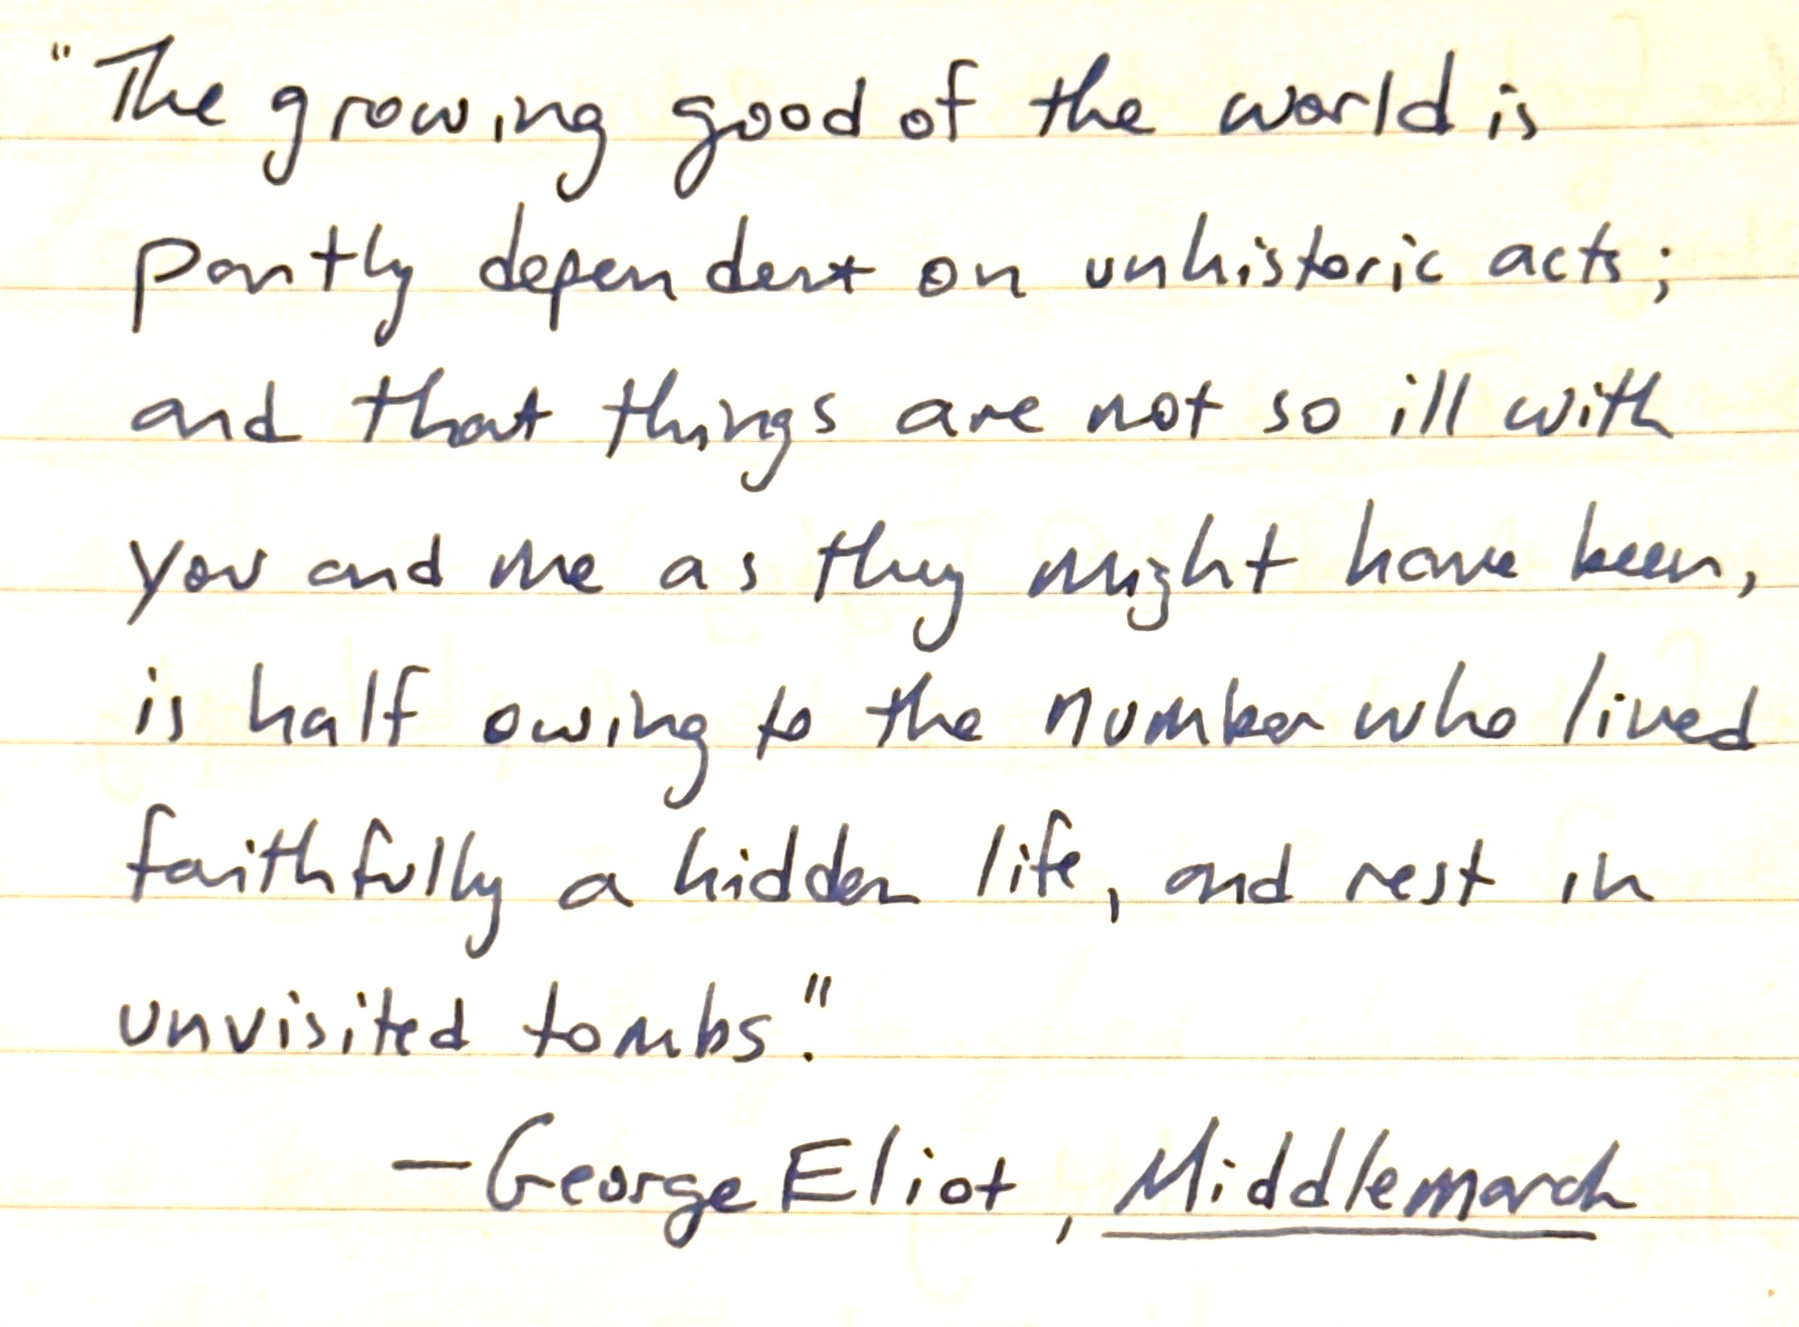 "The growing good of the world is
partly dependent on unhistoric acts;
and that things are not so ill with
you and me as they might have been,
is half owing to the number who lived
faithfully a hidden life, and rest in
unvisited tombs."
—George Eliot, Middlemarch